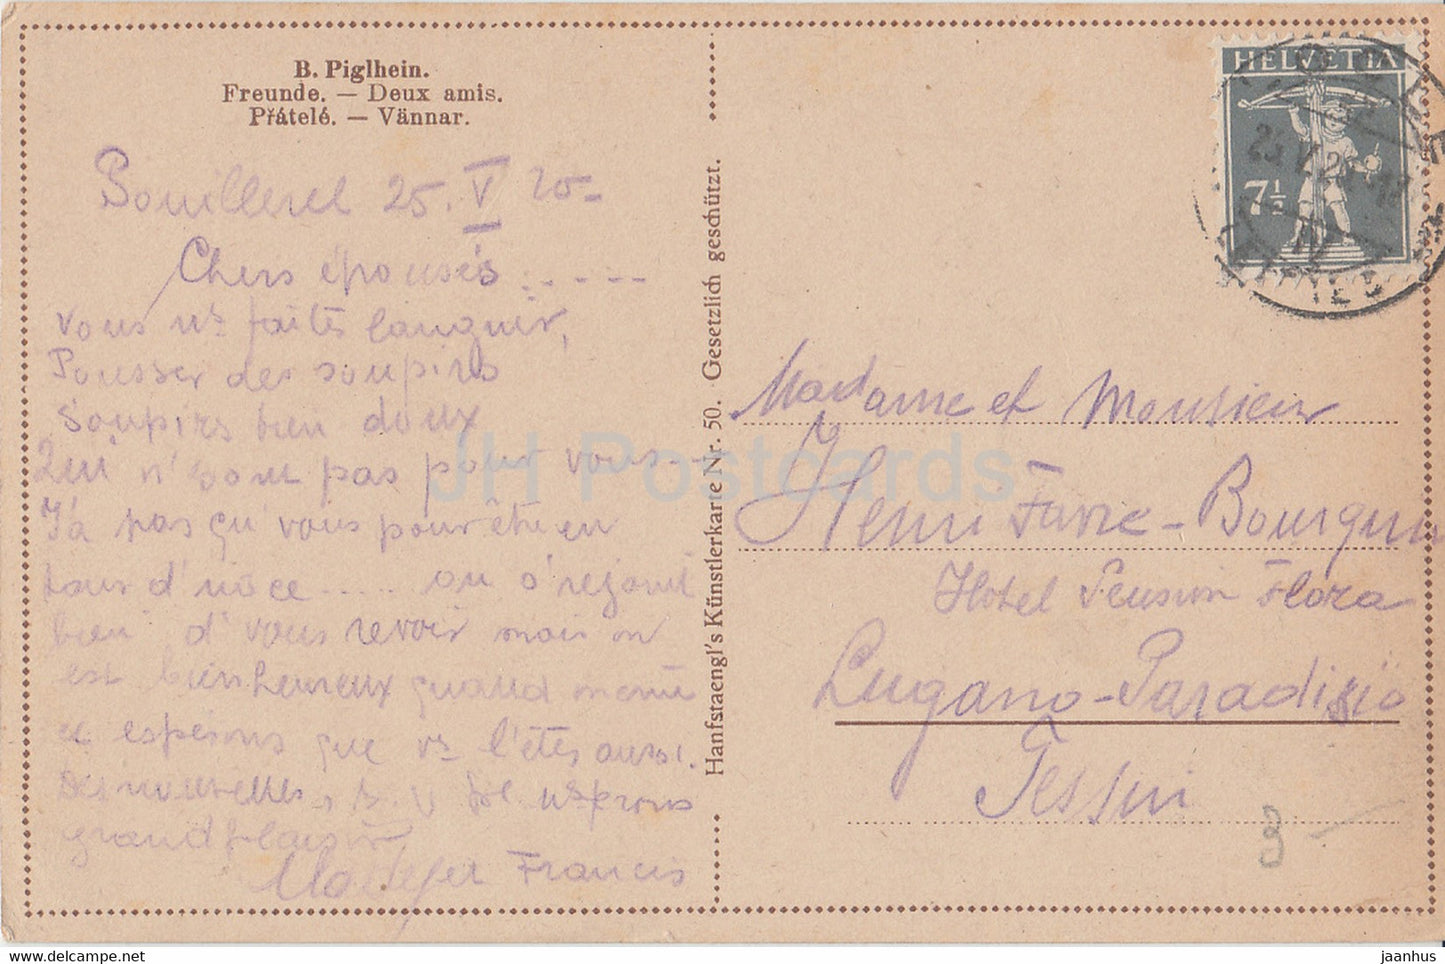 B. Piglhein.
Freunde. — Deux amis.
Přátelé. — Vännar.
Pouillerel 25. V 20-
Chers épousés .....
vous ns faites languir,
Pousser des soupirs
Soupirs bien doux
Qui n'sont pas pour vous...
Y'a pas qu'vous pour être en
tour d'noce ..... on s'rejouit
bien d'vous revoir mais on
est bienheureux quand même
et espérons que vs l'êtes aussi.
Des nouvelles, s. v. pl. ns ferons
grand plaisir
Francis
Hanfstaengl's Künstlerkarte Nr. 50. Gesetzlich geschützt.
HELVETIA
7½
25.V.20
IV
Madame et Monsieur
Henri Favre-Bourquin
Hotel Pension Flora
Lugano-Paradisio
Tessin
3 —
JH Postcards
www.delcampe.net
jaanhus